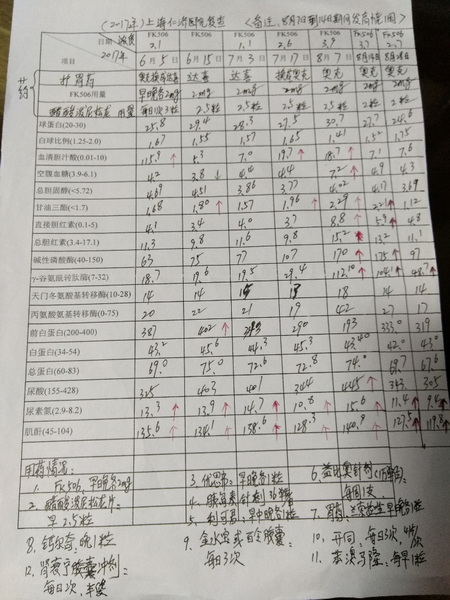 (2017年) 上海仁济医院复查 <备注: 8月7日到14日期间发高烧周>
日期 浓度 FK506 FK506 FK506 FK506 FK506 FK506 FK506
2017年 2.1 2.1 2.6 3.9 3.7 2.7
项目 6月5日 6月15日 7月3日 7月17日 8月7日 8月14日 8月28日
开胃药 达喜 达喜 奥克 奥克 奥克
FK506用量 早晚各2mg 2mg 2mg 2mg 2mg 2mg 2mg
醋酸泼尼松龙 用量 每日早3粒 2.5粒 2.5粒 2.5粒 2粒 2粒 2粒
球蛋白(20-30) 25.8 29.4 28.3 27.5 30.7 27.7 24.6
白球比例(1.25-2.0) 1.67 1.55 1.57 1.65 1.41 1.52 1.75
血清胆汁酸(0.01-10) 115.9 ↑ 5.3 7.0 19.7 ↑ 18.7 ↑ 7.1 7.6
空腹血糖(3.9-6.1) 4.2 3.8 ↓ 4.4 4.4 7.2 ↑ 4.9 4.3
总胆固醇(<5.72) 4.69 4.51 3.86 3.77 4.02 4.17 3.69
甘油三酯(<1.7) 1.68 1.80 ↑ 1.57 1.96 ↑ 2.29 ↑ 2.21 ↑ 1.12
直接胆红素(0.1-5) 4.1 3.4 4.0 3.7 8.8 ↑ 5.9 ↑ 4.8
总胆红素(3.4-17.1) 11.3 9.8 11.6 9.8 15.2 13.2 11.1
碱性磷酸酶(40-150) 63 75 77 107 170 ↑ 175 ↑ 97
γ-谷氨酰转肽酶(7-32) 18.7 19.6 19.5 29.4 112.10 ↑ 104.1 ↑ 48.7 ↑
天门冬氨酸基转移酶(10-28) 14 14 15 18 18 14 14
丙氨酸氨基转移酶(0-75) 20 22 21 19 42 27 17
前白蛋白(200-400) 387 402 ↑ 290 193 333.0 319
白蛋白(34-54) 43.2 45.6 44.3 45.3 43.40 42.0 43.0
总蛋白(60-83) 69.0 75.0 72.6 72.8 74.0 69.7 67.6
尿酸(155-428) 325 403 401 344 445 ↑ 343 305
尿素氮(2.9-8.2) 13.3 ↑ 13.9 ↑ 14.7 ↑ 10.8 ↑ 15.6 ↑ 11.4 ↑ 9.4 ↑
肌酐(45-104) 135.6 ↑ 134.1 ↑ 138.6 ↑ 128.3 ↑ 140.9 ↑ 127.5 ↑ 119.8 ↑
用药情况:
1. FK506, 早晚各2mg
2. 醋酸泼尼松龙片:
早2.5粒
3. 优思弗: 早晚各1粒
4. 胰岛素针剂36
5. 利可君: 早中晚各1粒
6. 益比奥针剂
每周1支.
8. 钙尔奇: 晚1粒
9. 金水宝或百令胶囊:
每日3次
10. 开同, 每日3次, 4粒/次
11. 苯溴马隆, 每早1粒
12. 肾衰宁胶囊冲剂:
每日2次,